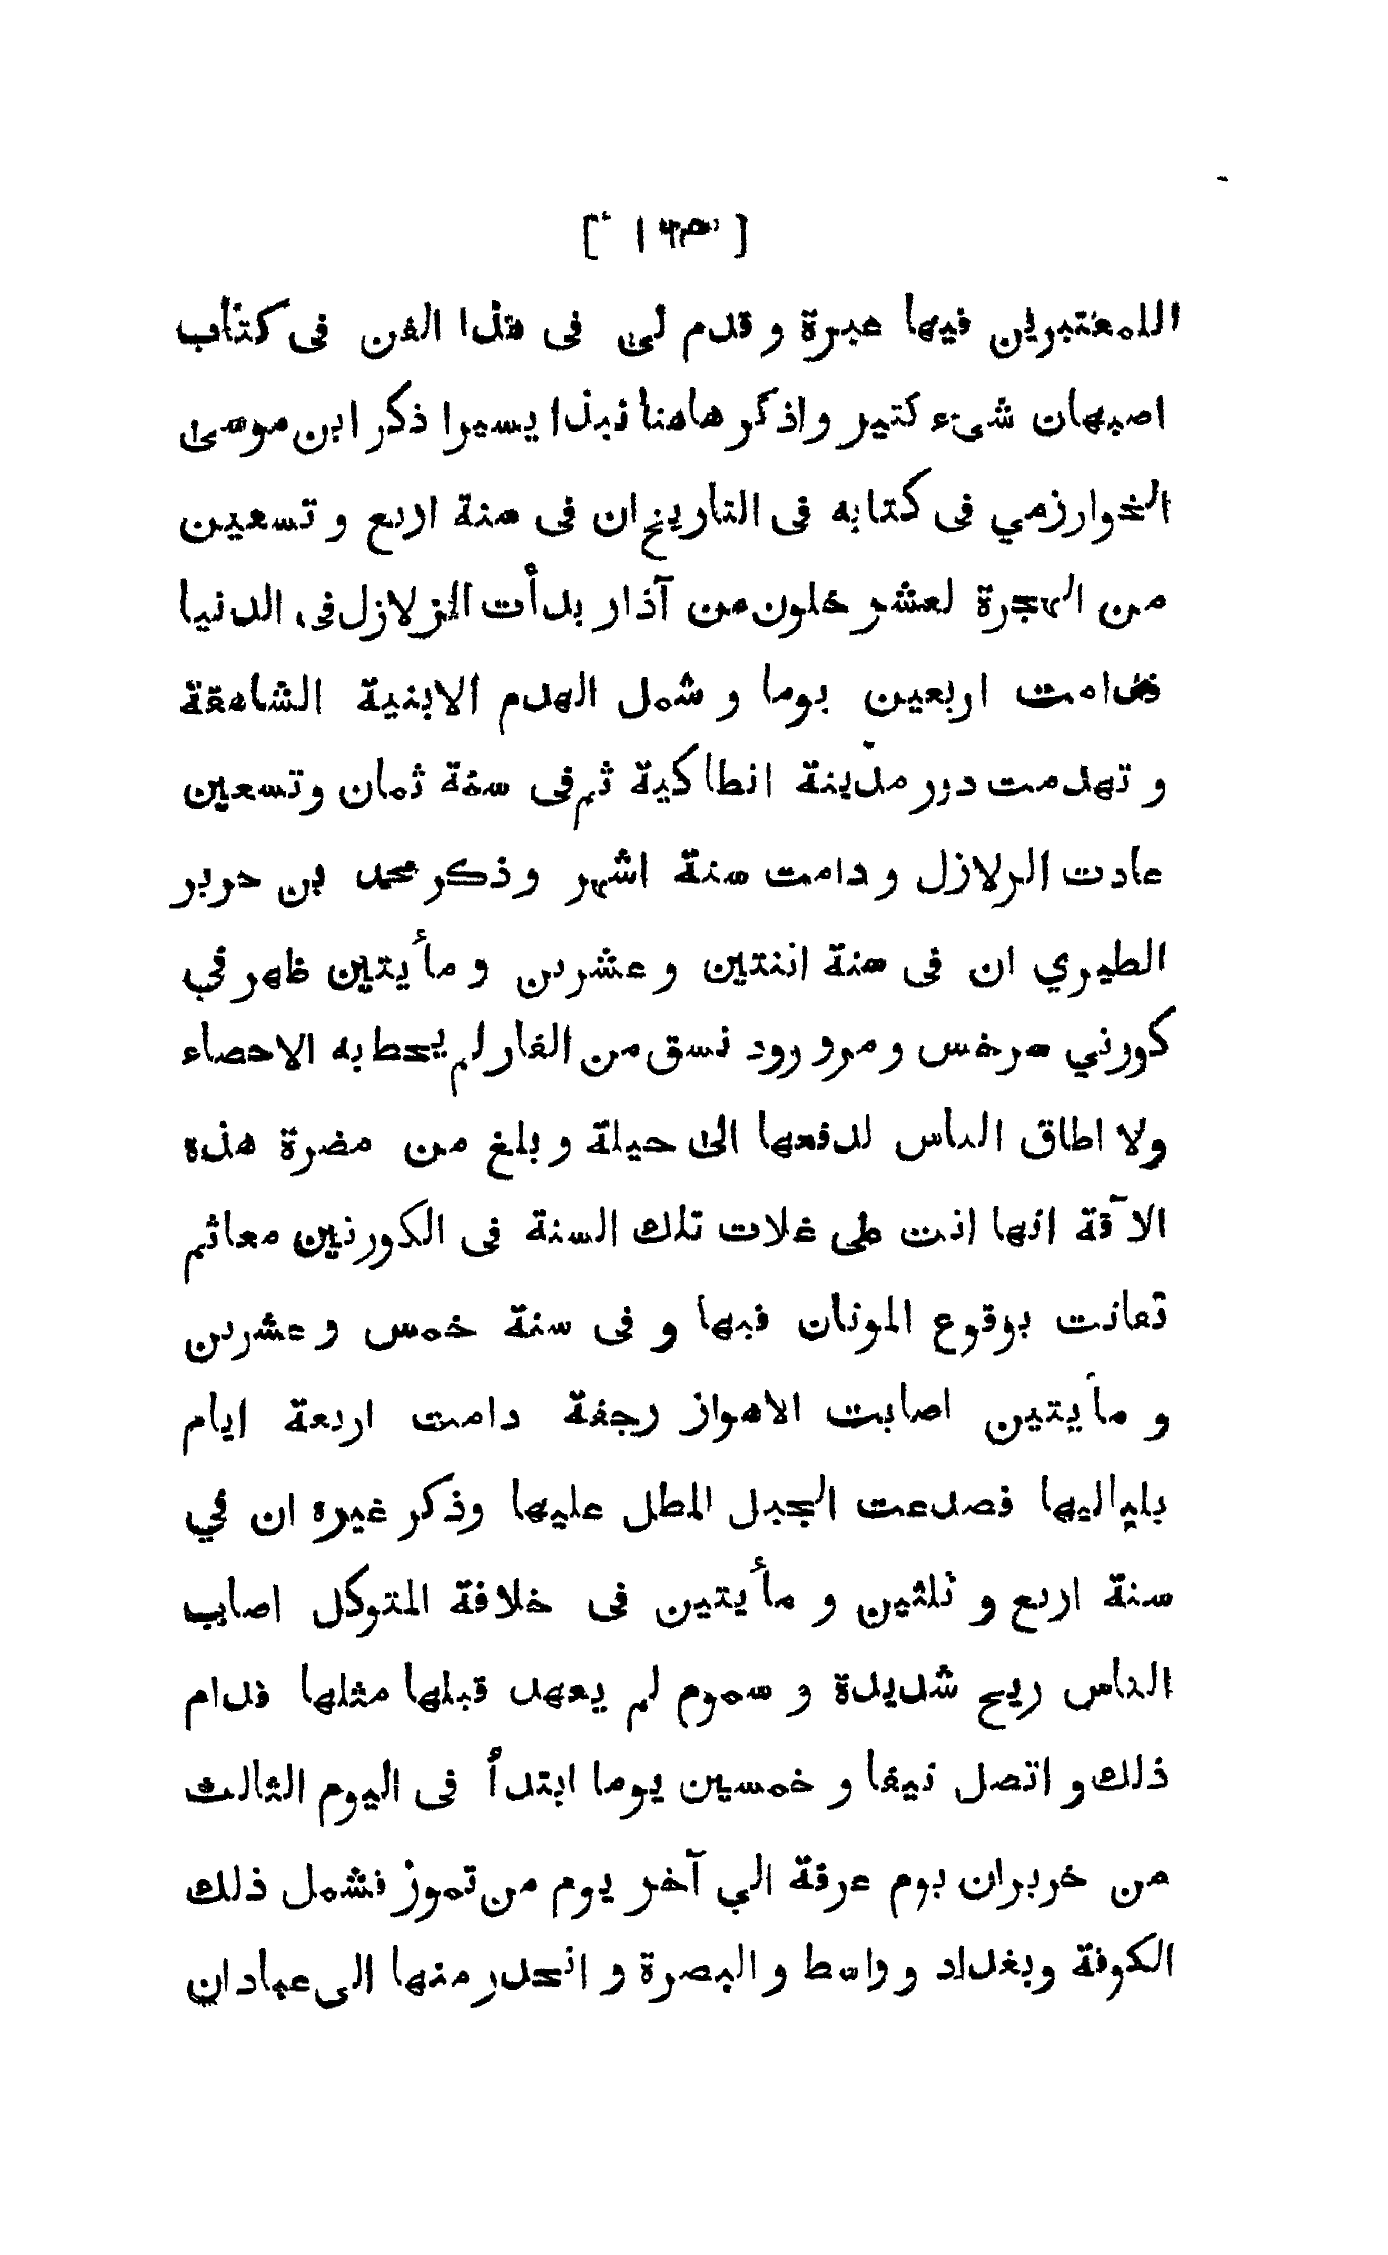 اللمعتبرين فيها عبرة و قدم لى فى هذا الفن فى كتاب
اصبهان شىء كتير واذكر هاهنا نبذا يسيرا ذكر ابن موسى
الخوارزمي فى كتابه فى التاريخ ان فى سنة اربع و تسعين
من الهجرة لعشر خلون من آذار بدأت الزلازل فى الدنيا
فدامت اربعين يوما و شمل الهدم الابنية الشاهقة
و تهدمت دور مدينة انطاكية ثم فى سنة ثمان وتسعين
عادت الرلازل و دامت ستة اشهر و ذكر محمد بن حرير
الطبري ان فى سنة اثنتين و عشرين و مأيتين ظهر في
كورني سرخس و مرو رود نسق من الفار لم يحط به الاحصاء
ولا اطاق الناس لدفعها الى حيلة و بلغ من مضرة هذه
الآفة انها اتت على غلات تلك السنة فى الكورتين معاثم
تفانت بوقوع الموتان فيها و فى سنة خمس و عشرين
و مايتين اصابت الاهواز رجفة دامت اربعة ايام
بلياليها فصدعت الجبل المطل عليها وذكر غيره ان في
سنة اربع و ثلثين و مأيتين فى خلافة المتوكل اصاب
الناس ريح شديدة و سموم لم يعهد قبلها مثلها فدام
ذلك و اتصل نيفا و خمسين يوما ابتدأ فى اليوم الثالث
من خريران يوم عرفة الي آخر يوم من تموز فشمل ذلك
الكوفة وبغداد و واسط و البصرة و انحدر منها الى عبادان